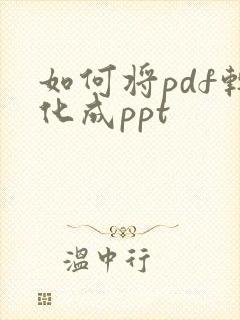 如何将pdf转
化成ppt
温中行